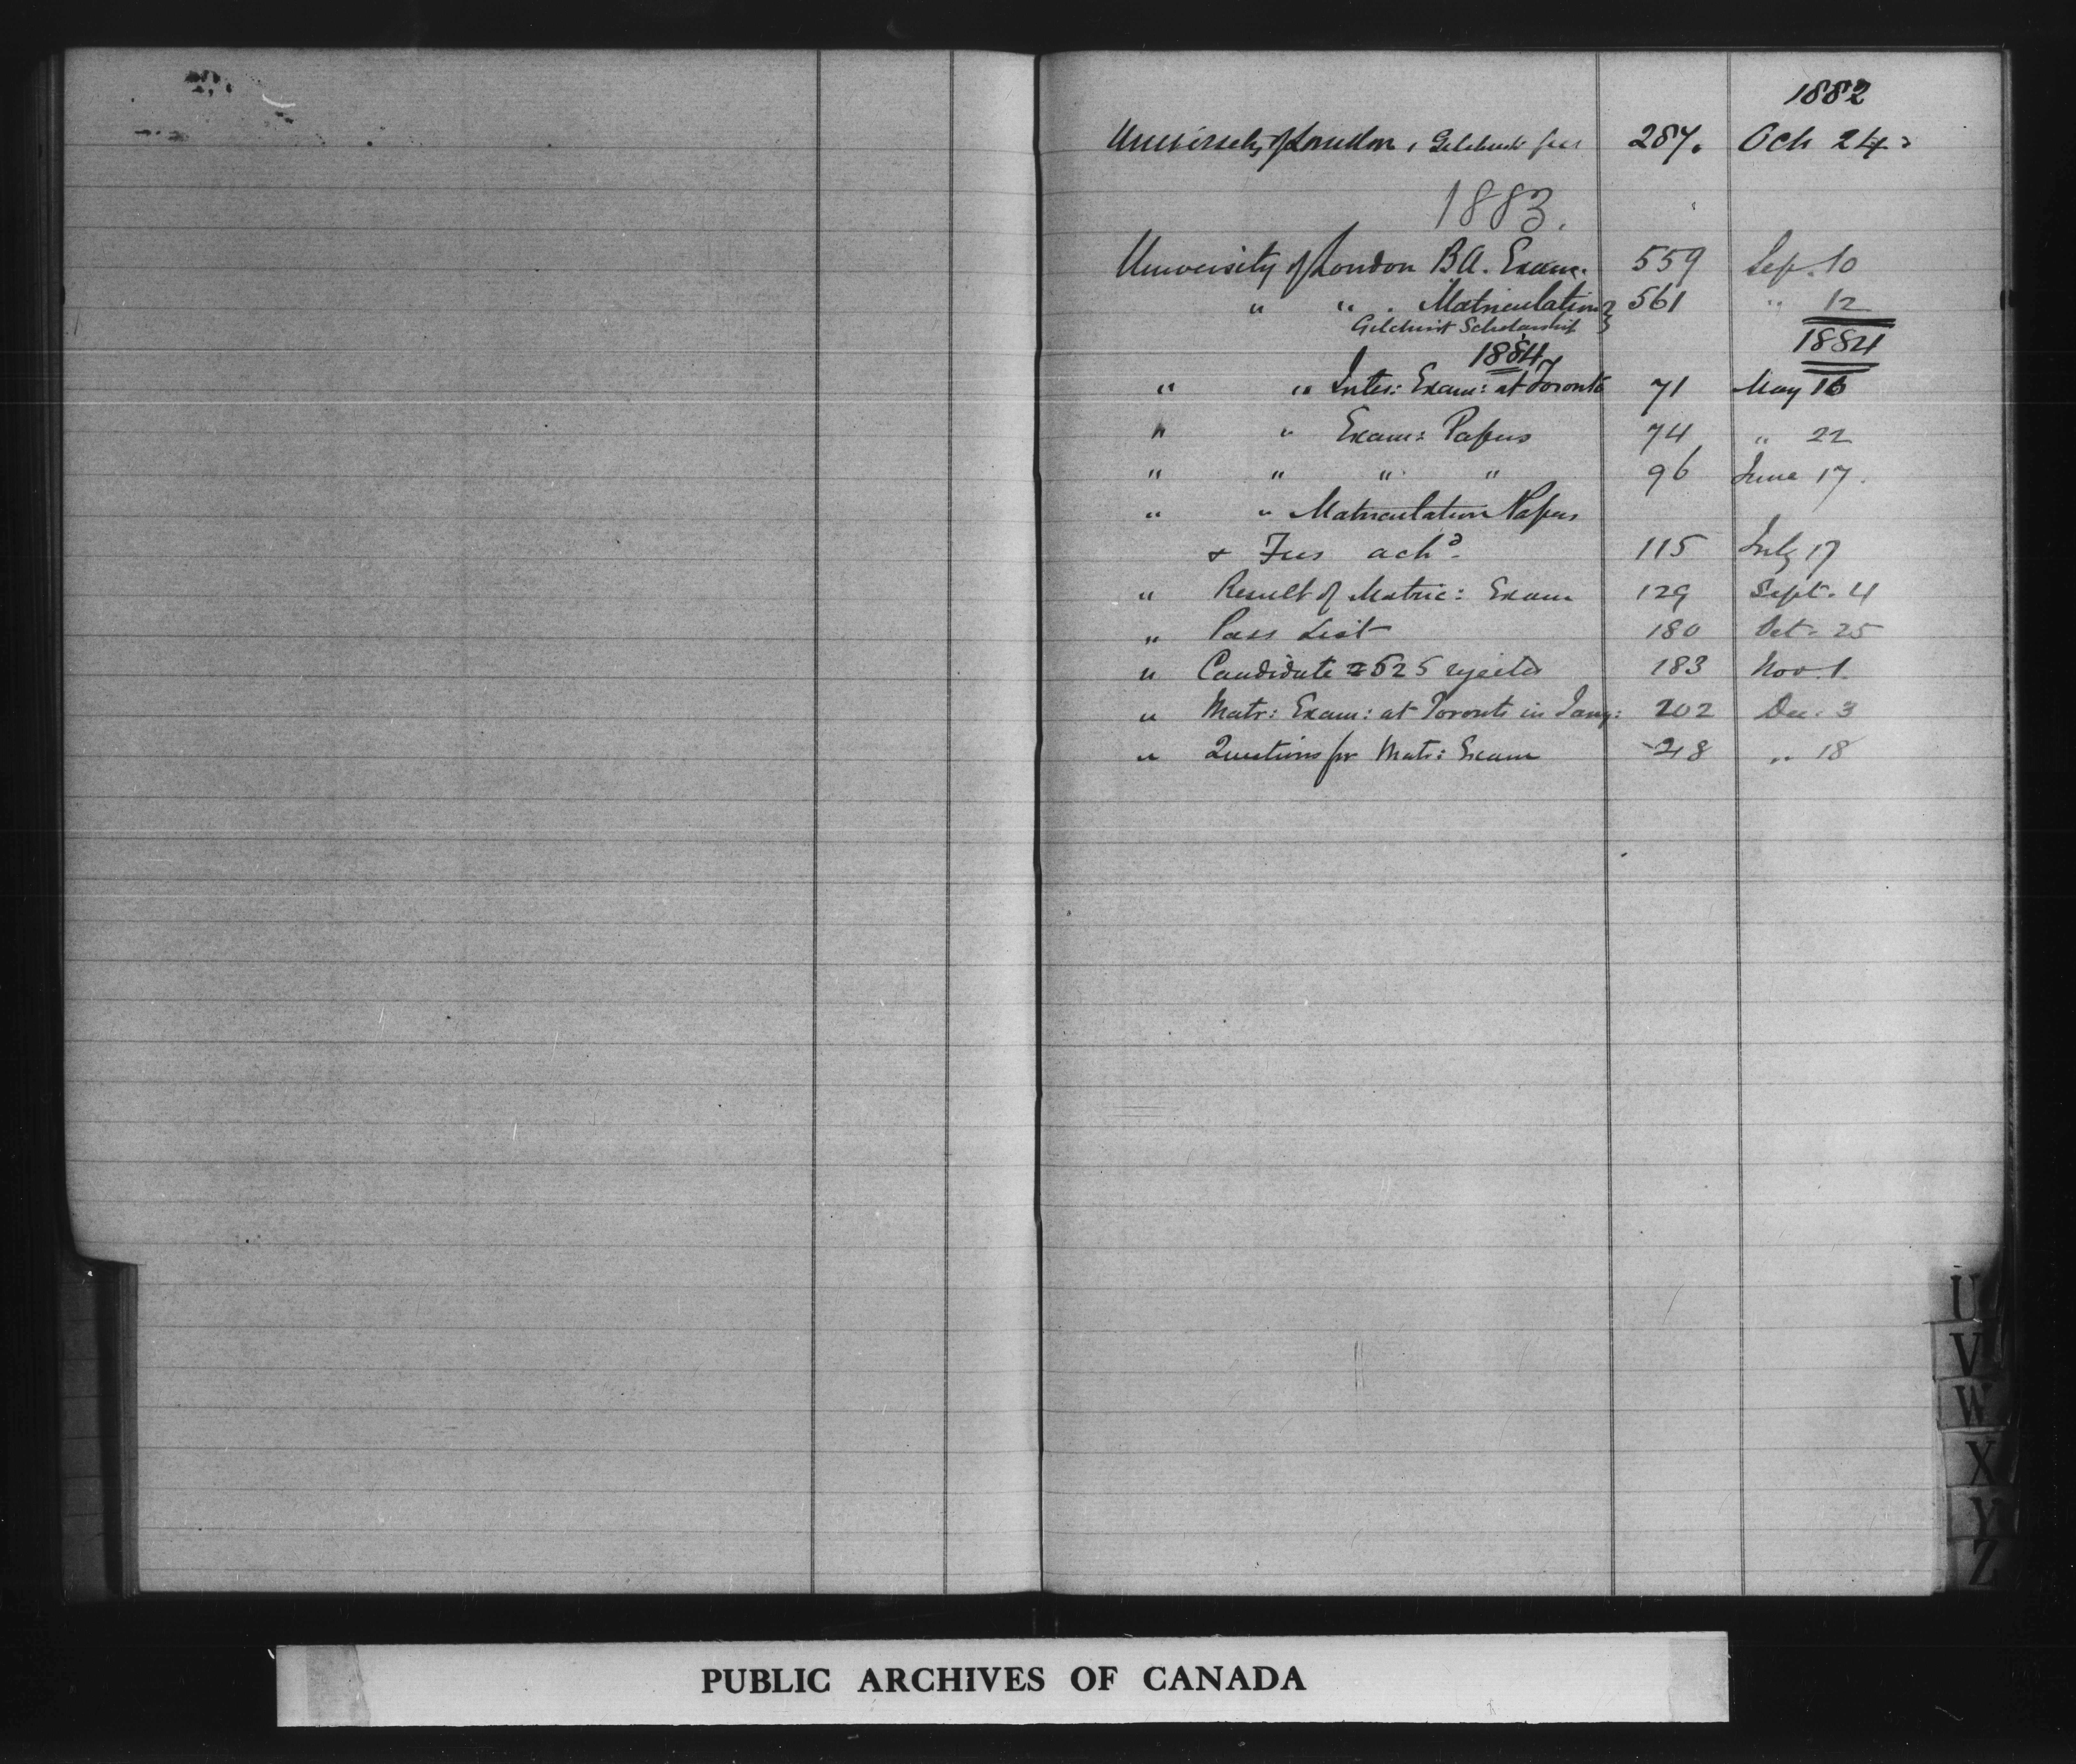 1882
University of London, Gilchrist fees 287. Oct 24
1883.
University of London B.A. Exam. 559 Sep. 10
" " . Matriculation } 561 " 12
Gilchrist Scholarship
1884 1884
" " Inter: Exam: at Toronto 71 May 16
" " Exam: Papers 74 " 22
" " " " 96 June 17.
" " Matriculation Papers
& Fees ackd. 115 July 17
" Result of Matric: Exam 129 Sept. 4
" Pass List 180 Oct. 25
" Candidate 2525 rejected 183 Nov. 1.
" Matr: Exam: at Toronto in Jany: 202 Dec. 3
" Questions for Matr: Exam 218 " 18
U
V
W
X
Y
Z
PUBLIC ARCHIVES OF CANADA